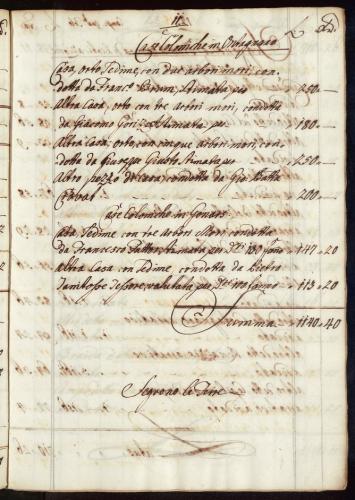 11
Case Coloniche in Ontagnano
Casa, orto Sedime, con due arbori mori, con-
dotta da Franc.o stimata per 250
Altra Casa, orto con tre Arbori mori, condotta
da Giacomo stimata per 180
Altra Casa, orto, con cinque arbori mori, con-
dotta da Giuseppe Giusto stimata per 250
Altro pezzo di casa, condotta da Gio: Batta
200
Case Coloniche in Gonars
Casa Sedime con tre Arbori Mori condotta
da Francesco stimata per 147 20
altra Casa con Sedime condotta da Pietro
valutata per 113 20
Summa 1140 40
Seguono le Terre